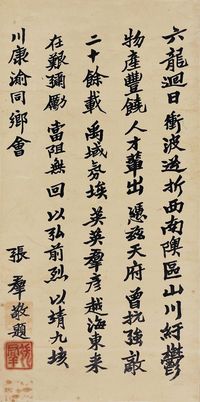 六龍迴日衝波逆折西南隩區山川紆鬱
物產豐饒人才輩出憑茲天府曾抗強敵
二十餘載禹域氛埃英英羣彥越海東來
在艱彌勵當阻無回以弘前烈以靖九垓
川康渝同鄉會
張羣敬題